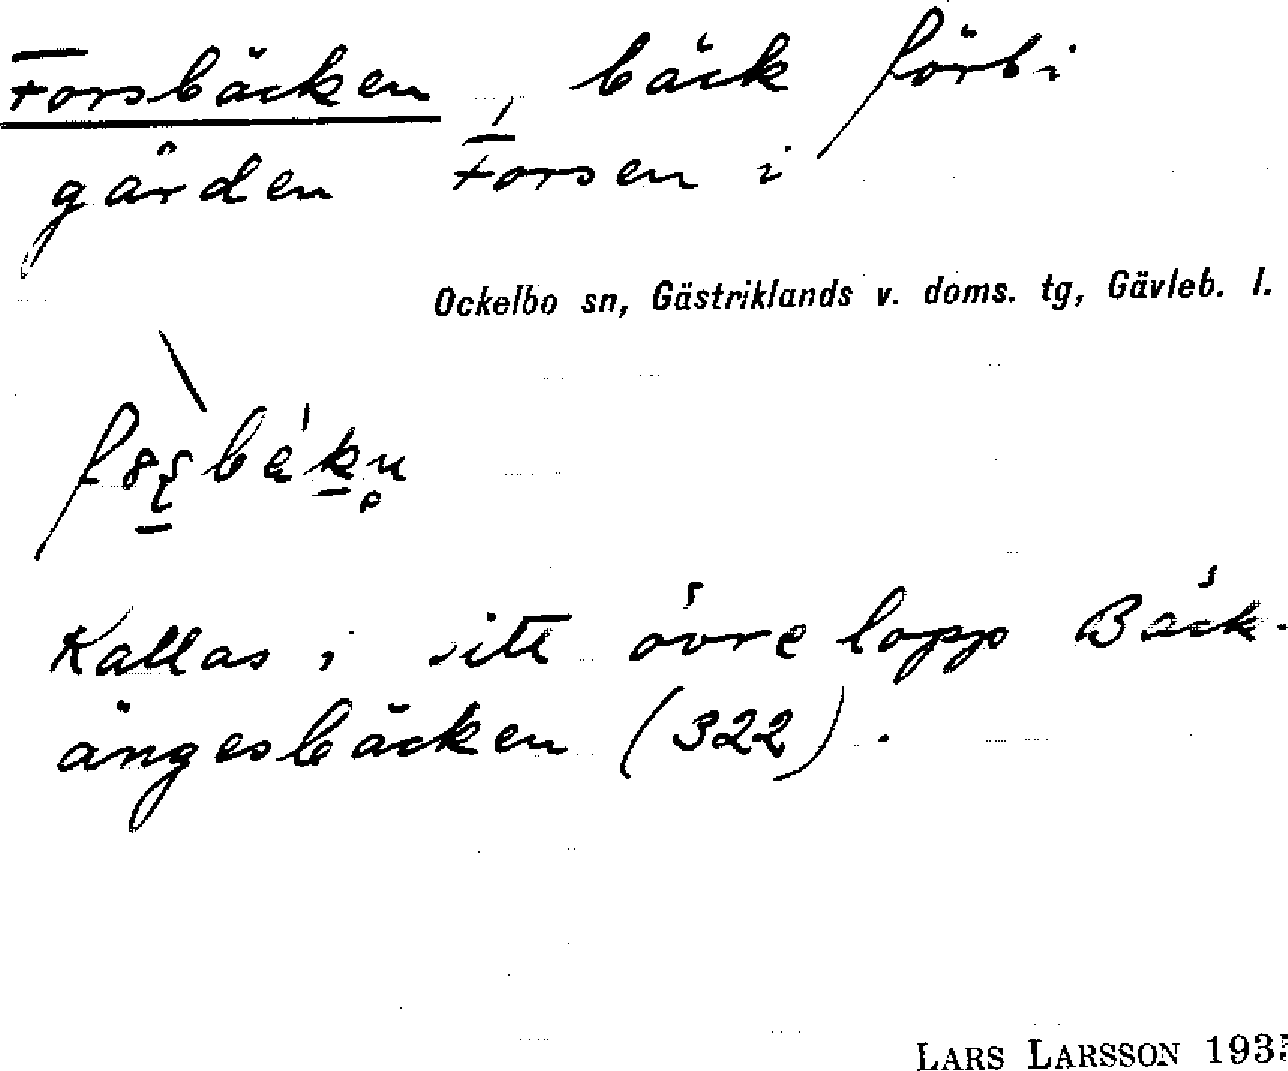 Forsbäcken, bäck förbi
gården Forsen i
Ockelbo sn, Gästriklands v. doms. tg, Gävleb. l.
Kallas i sitt övre lopp Bäck-
ängesbäcken (322).
LARS LARSSON 193